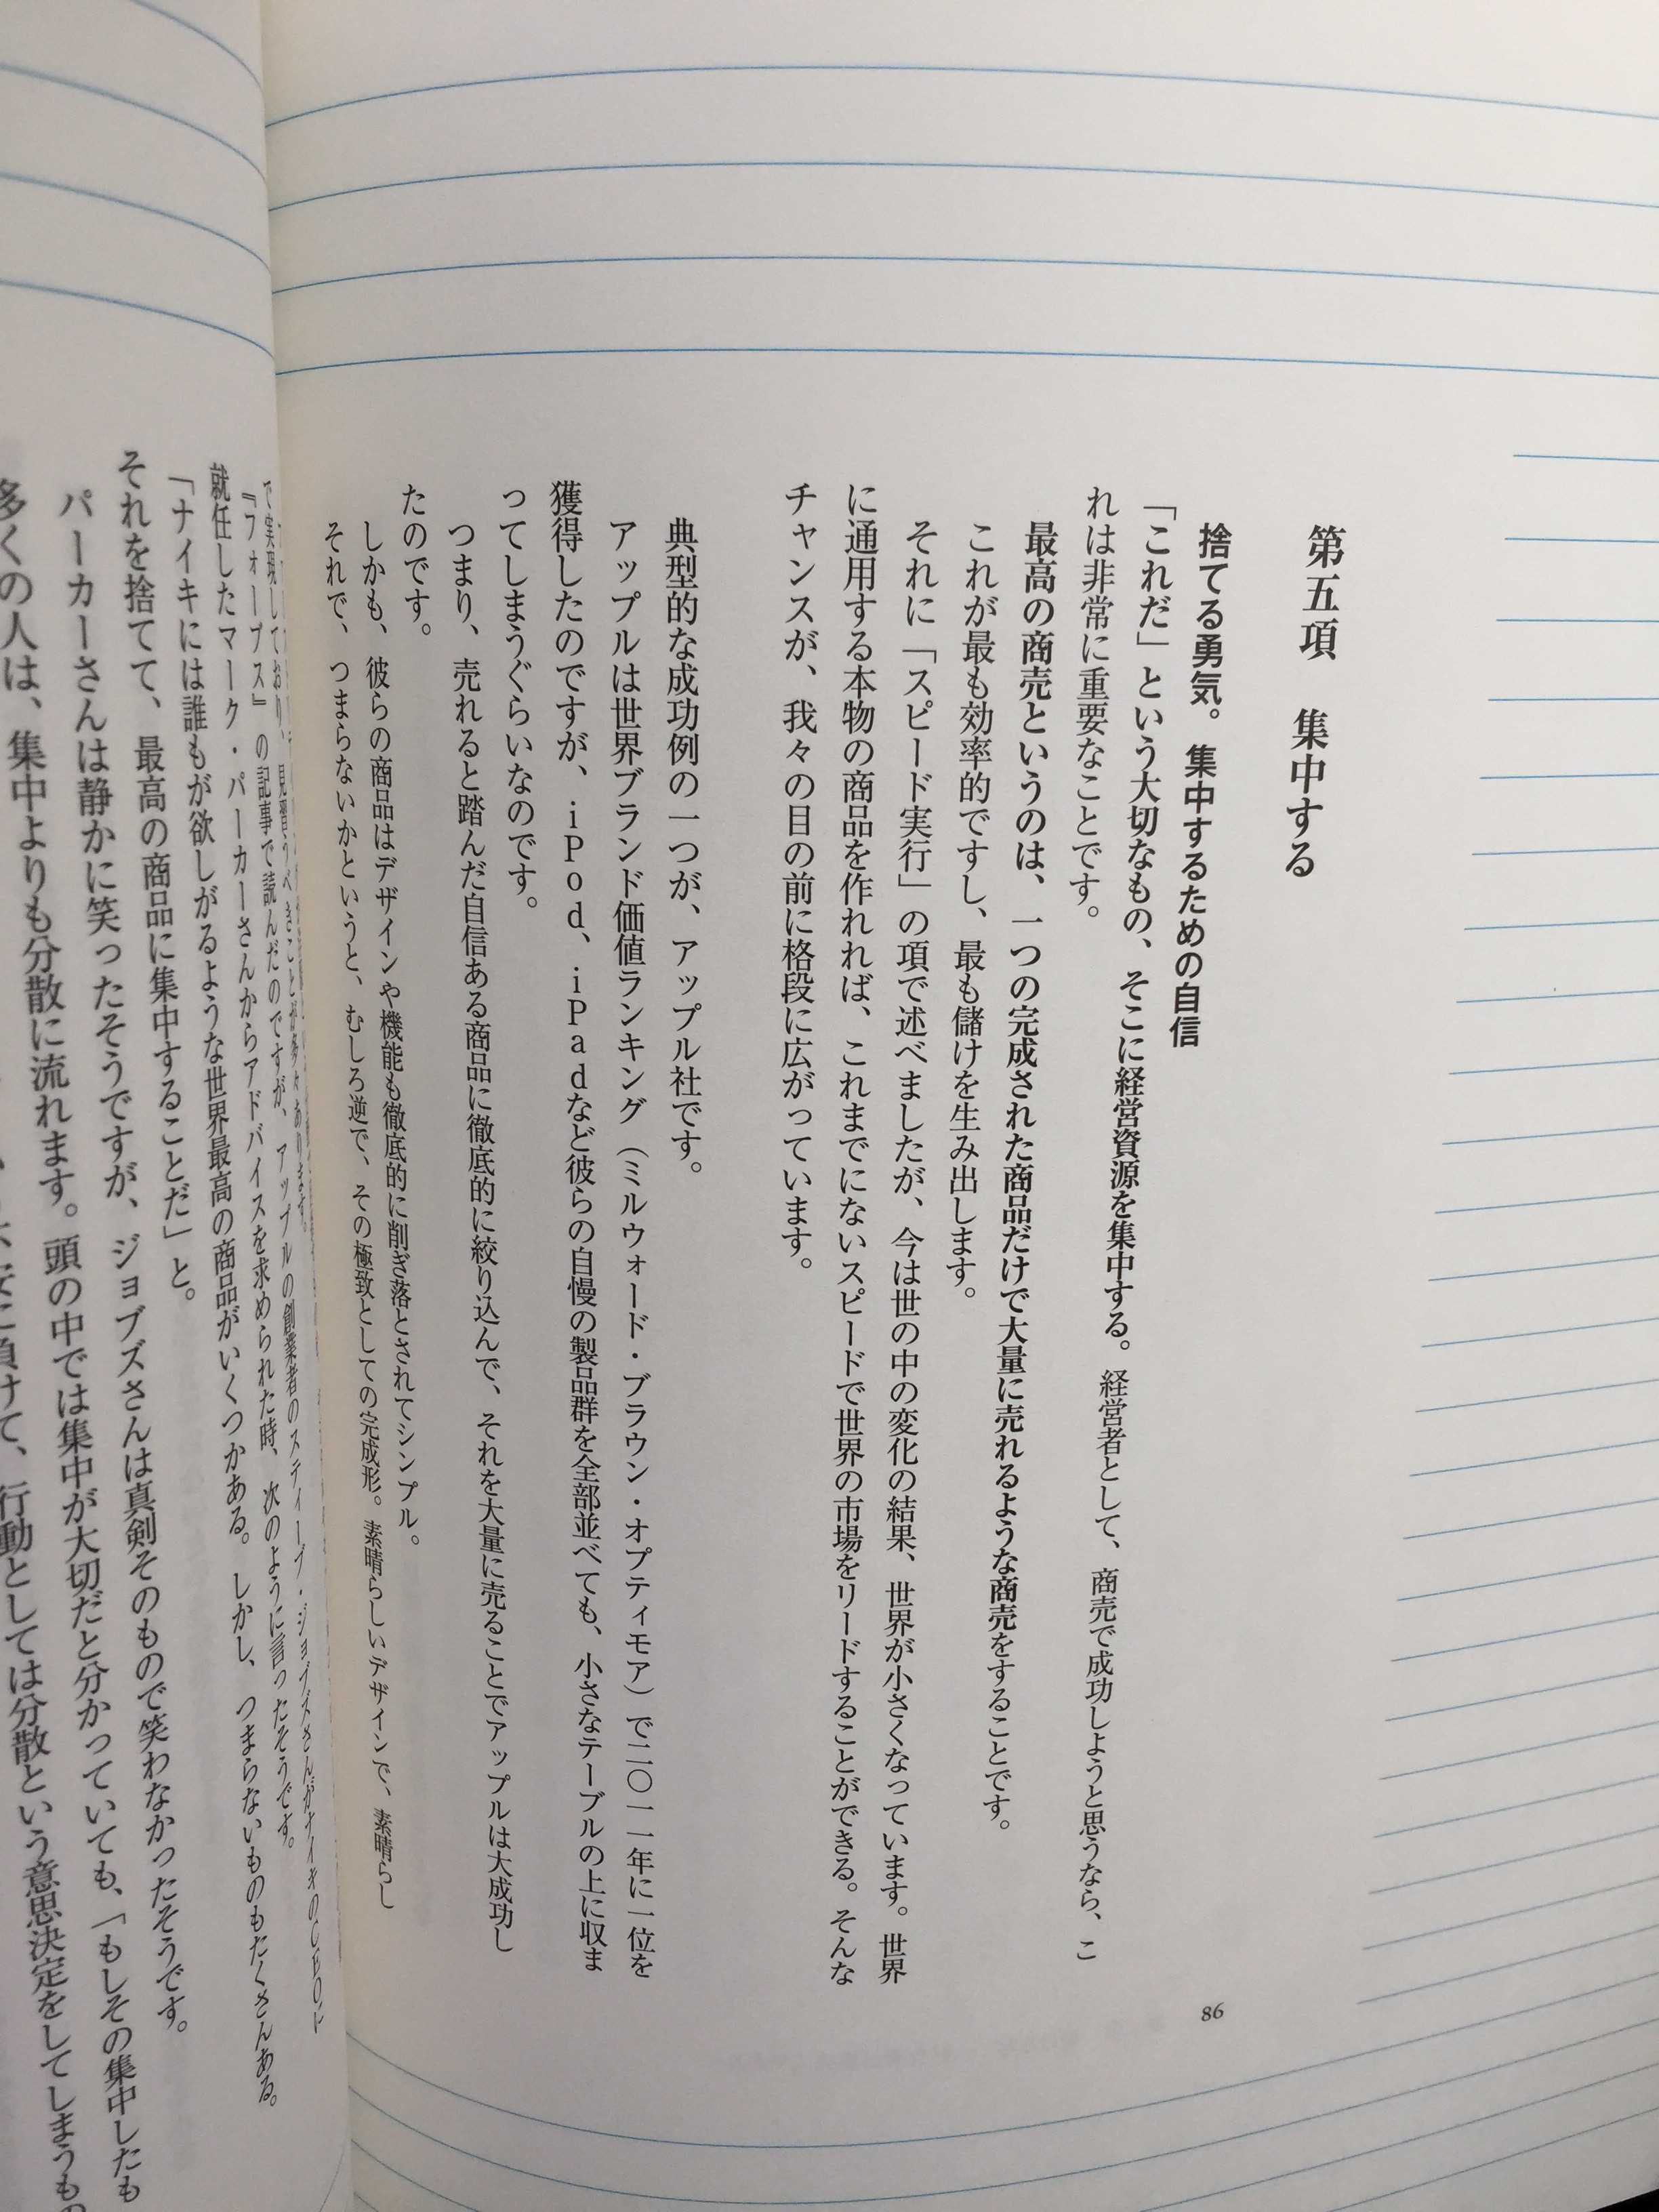 第五項　集中する
捨てる勇気。集中するための自信
「これだ」という大切なもの、そこに経営資源を集中する。経営者として、商売で成功しようと思うなら、こ
れは非常に重要なことです。
最高の商売というのは、一つの完成された商品だけで大量に売れるような商売をすることです。
これが最も効率的ですし、最も儲けを生み出します。
それに「スピード実行」の項で述べましたが、今は世の中の変化の結果、世界が小さくなっています。世界
に通用する本物の商品を作れれば、これまでにないスピードで世界の市場をリードすることができる。そんな
チャンスが、我々の目の前に格段に広がっています。
典型的な成功例の一つが、アップル社です。
アップルは世界ブランド価値ランキング（ミルウォード・ブラウン・オプティモア）で二〇一一年に一位を
獲得したのですが、iPod、iPadなど彼らの自慢の製品群を全部並べても、小さなテーブルの上に収ま
ってしまうぐらいなのです。
つまり、売れると踏んだ自信ある商品に徹底的に絞り込んで、それを大量に売ることでアップルは大成功し
たのです。
しかも、彼らの商品はデザインや機能も徹底的に削ぎ落とされてシンプル。
それで、つまらないかというと、むしろ逆で、その極致としての完成形。素晴らしいデザインで、素晴らし
86
で実現しており、見習うべきことが多々あります。
『フォーブス』の記事で読んだのですが、アップルの創業者のスティーブ・ジョブズさんがナイキのCEOに
就任したマーク・パーカーさんからアドバイスを求められた時、次のように言ったそうです。
「ナイキには誰もが欲しがるような世界最高の商品がいくつかある。しかし、つまらないものもたくさんある。
それを捨てて、最高の商品に集中することだ」と。
パーカーさんは静かに笑ったそうですが、ジョブズさんは真剣そのもので笑わなかったそうです。
多くの人は、集中よりも分散に流れます。頭の中では集中が大切だと分かっていても、「もしその集中したも
負けて、行動としては分散という意思決定をしてしまうもの